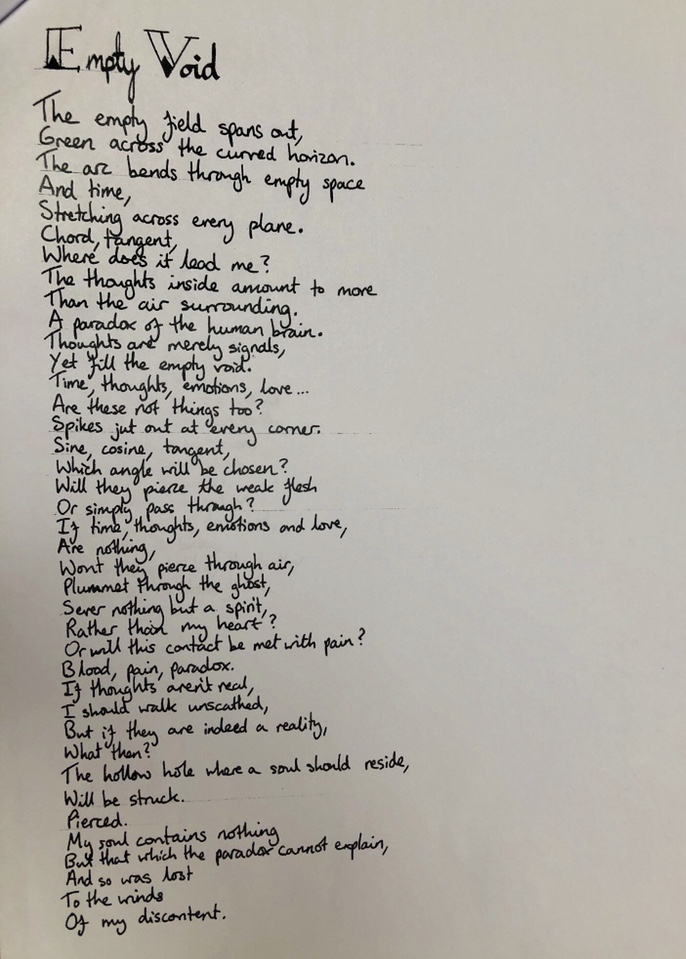 Empty Void
The empty field spans out,
Green across the curved horizon.
The arc bends through empty space
And time,
Stretching across every plane.
Chord, tangent,
Where does it lead me?
The thoughts inside amount to more
Than the air surrounding.
A paradox of the human brain.
Thoughts are merely signals,
Yet fill the empty void.
Time, thoughts, emotions, love...
Are these not things too?
Spikes jut out at every corner.
Sine, cosine, tangent,
Which angle will be chosen?
Will they pierce the weak flesh
Or simply pass through?
If time, thoughts, emotions and love,
Are nothing,
Wont they pierce through air,
Plummet through the ghost,
Sever nothing but a spirit,
Rather than my heart?
Or will this contact be met with pain?
Blood, pain, paradox.
If thoughts aren't real,
I should walk unscathed,
But if they are indeed a reality,
What then?
The hollow hole where a soul should reside,
Will be struck.
Pierced.
My soul contains nothing
But that which the paradox cannot explain,
And so was lost
To the winds
Of my discontent.